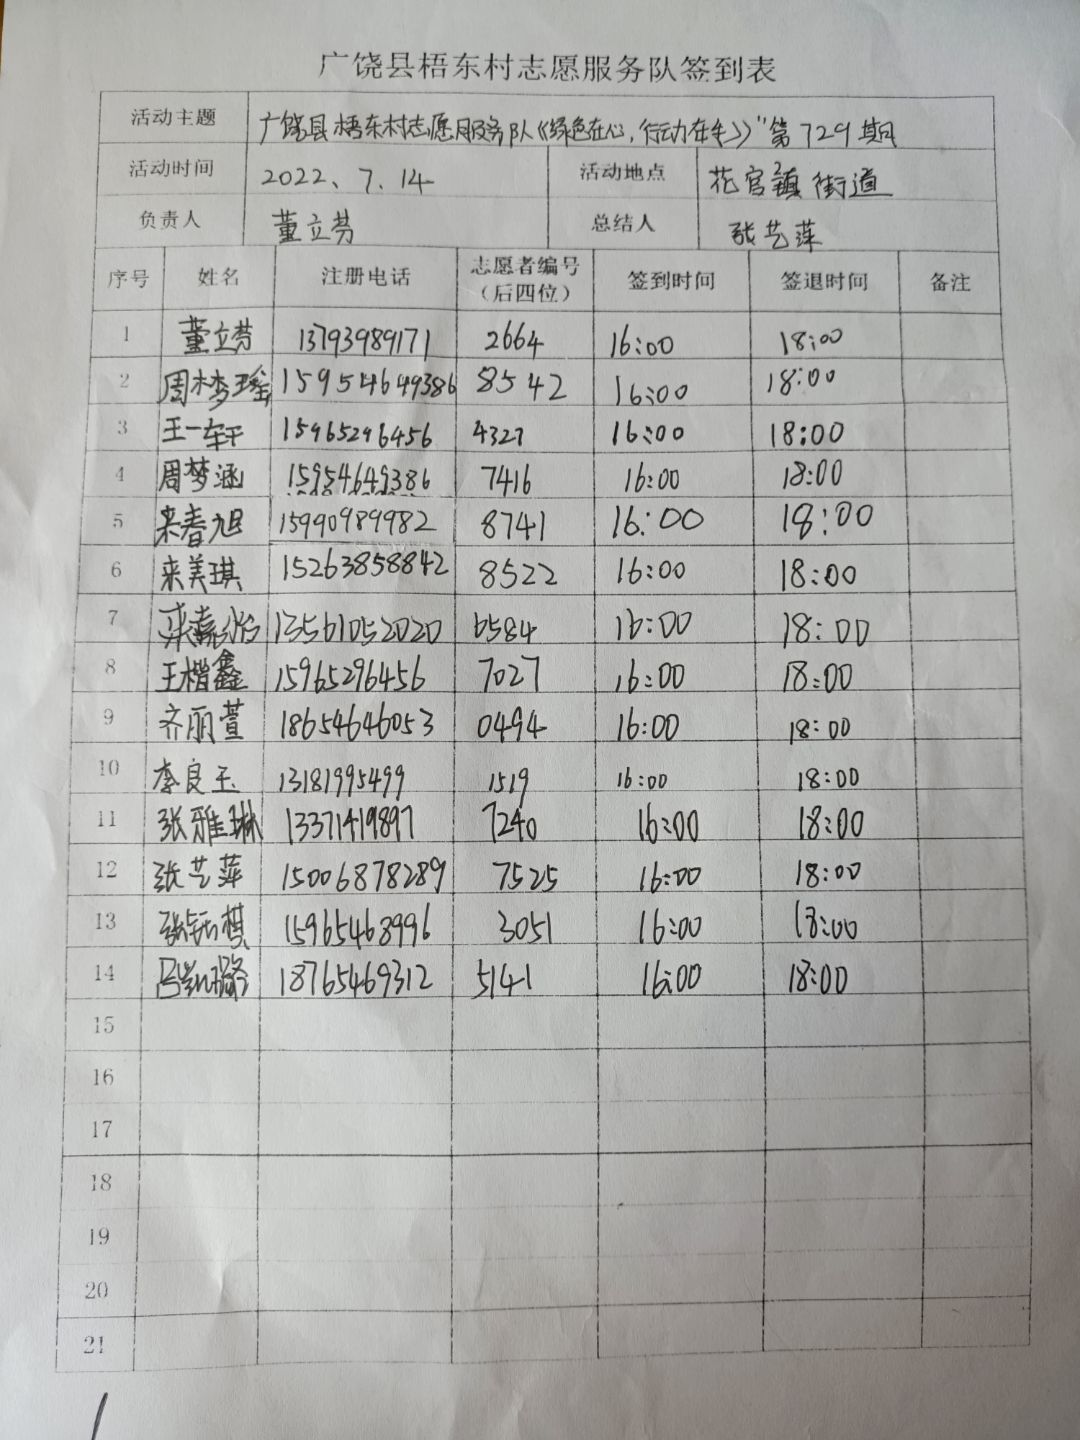 广饶县梧东村志愿服务队签到表
活动主题 广饶县梧东村志愿服务队《绿色在心,行动在手》"第729期
活动时间 2022、7.14 活动地点 花官镇街道
负责人 董立芬 总结人 张艺萍
序号 姓名 注册电话 志愿者编号(后四位) 签到时间 签退时间 备注
1 董立芬 13793989171 2664 16:00 18:00
2 周梦瑶 15954649386 8542 16:00 18:00
3 王一轩 15965296456 4327 16:00 18:00
4 周梦涵 15954649386 7416 16:00 18:00
5 来春旭 15990989982 8741 16:00 18:00
6 来美琪 15263858842 8522 16:00 18:00
7 13561052020 6584 16:00 18:00
8 王楷鑫 15965296456 7027 16:00 18:00
9 齐丽萱 18654646053 0494 16:00 18:00
10 李良玉 13181995499 1519 16:00 18:00
11 张雅琳 13371419897 7240 16:00 18:00
12 张艺萍 15006878289 7525 16:00 18:00
13 张钰棋 15965468996 3051 16:00 18:00
14 18765469312 5141 16:00 18:00
15
16
17
18
19
20
21